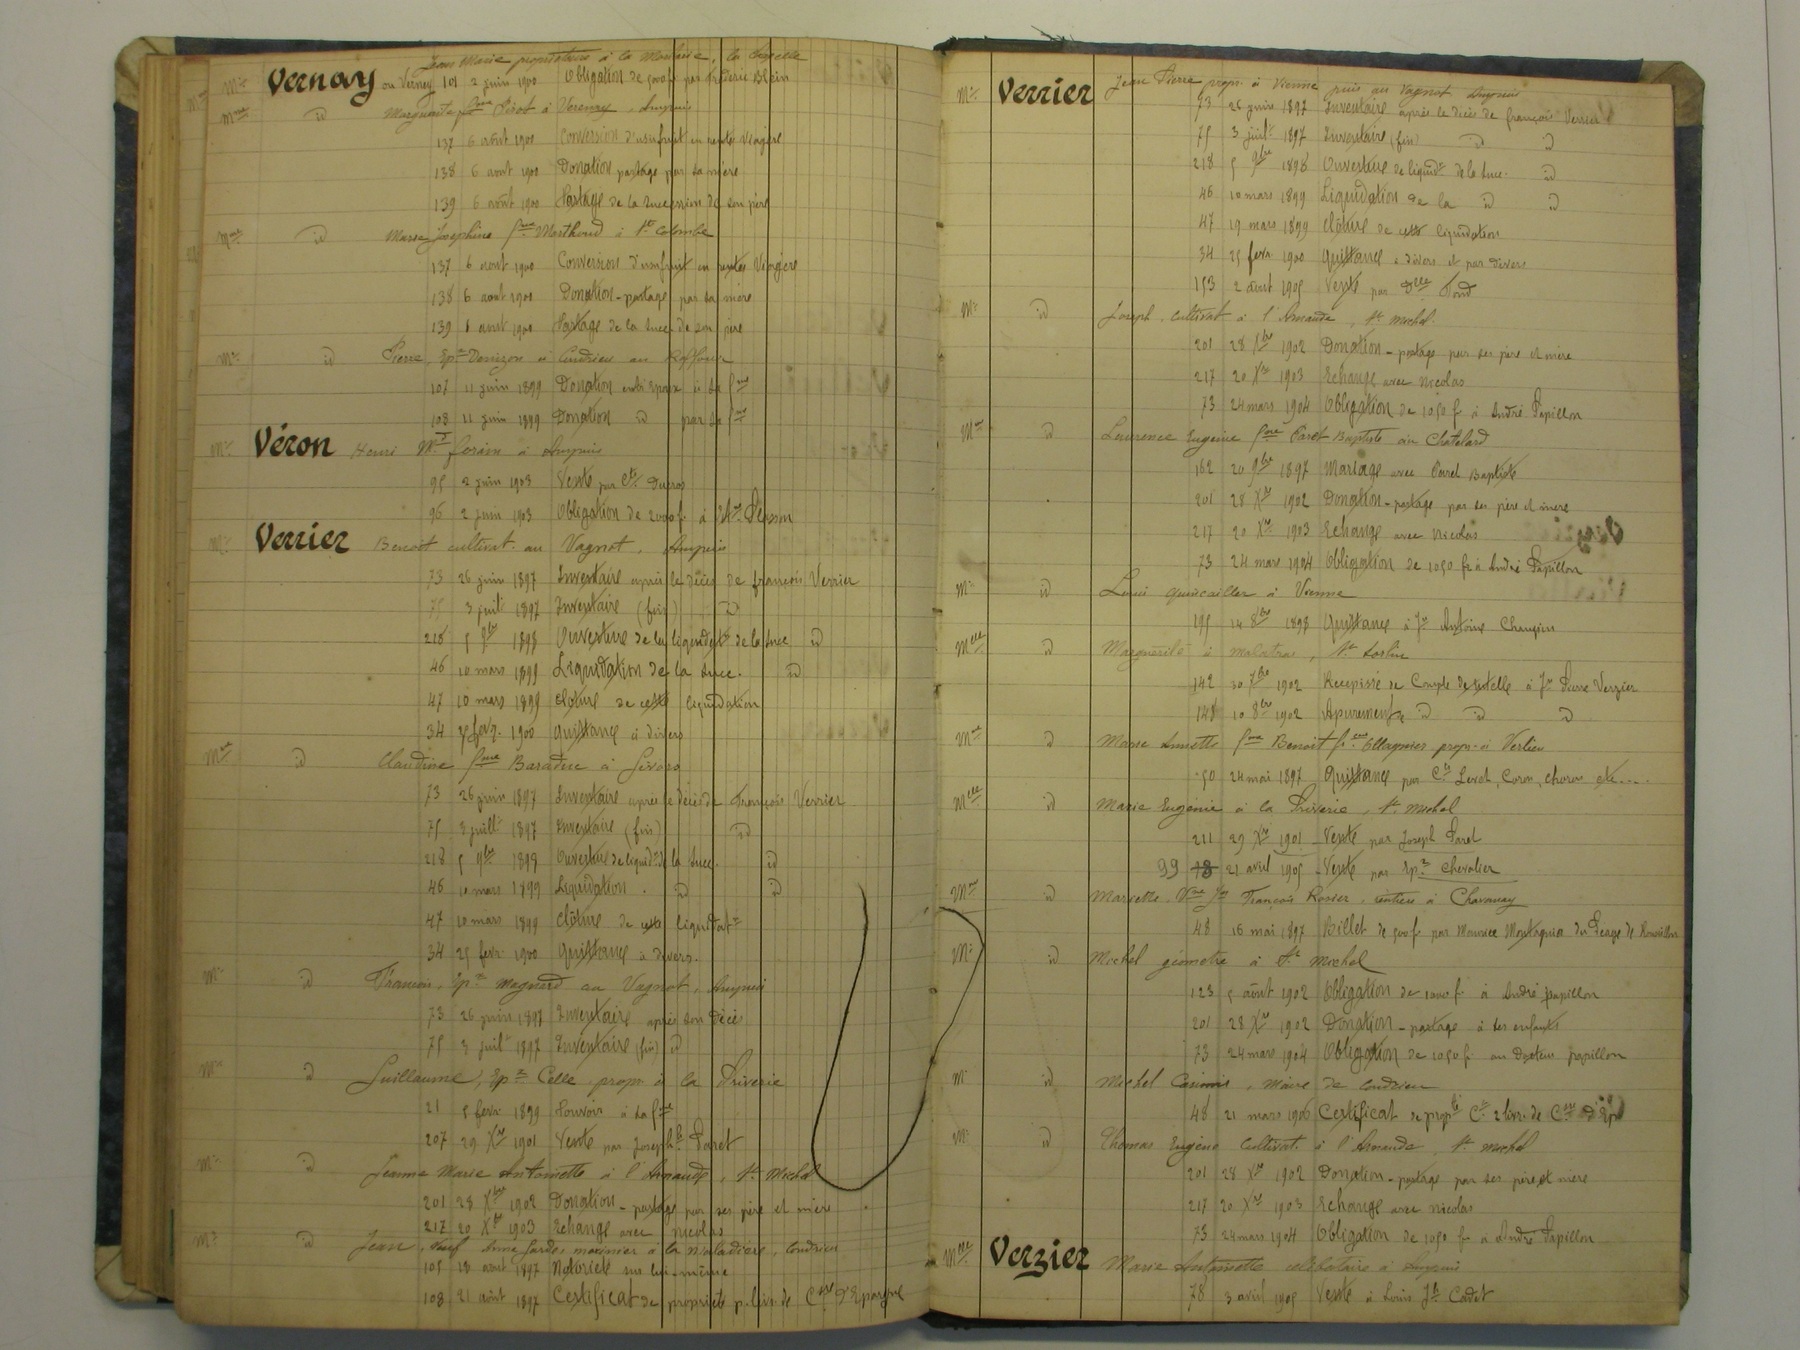 Mr Vernay ou Verney Jean Marie propriétaire à la
101 2 juin 1900 Obligation de 5000f par Frédéric Blein
Mme id Marguerite fme Pirot à Verenay, Ampuis
137 6 août 1900 Conversion d'usufruit en rentes viagère
138 6 août 1900 Donation partage par sa mère
139 6 août 1900 Partage de la succession de son père
Mme id Marie Joséphine fme Marthoud à Ste Colombe
137 6 août 1900 Conversion d'usufruit en rentes viagère
138 6 août 1900 Donation-partage par sa mère
139 6 août 1900 Partage de la succ. de son père
Mr id Pierre, Epx Donizon à Condrieu
107 11 juin 1899 Donation entre époux à sa fme
108 11 juin 1899 Donation id par sa fme
Mr Véron Henri Md forain à Ampuis
95 2 juin 1903 Vente par Cts Ducros
96 2 juin 1903 Obligation de 2000f. à
Mr Verrier Benoit cultivat. au Vagnot, Ampuis
73 26 juin 1897 Inventaire après le décès de françois Verrier
75 3 juilt 1897 Inventaire (fin) id
218 5 9bre 1898 Ouverture de la liquidat. de la succ id
46 10 mars 1899 Liquidation de la succ. id
47 10 mars 1899 Clôture de cette liquidation
34 25 fevr. 1900 Quittance à divers
Mme id Claudine fme Baraduc à Givors
73 26 juin 1897 Inventaire après le décès de François Verrier
75 3 juillt 1897 Inventaire (fin) id
218 5 9bre 1898 Ouverture de liquidon de la succ. id
46 10 mars 1899 Liquidation. id id
47 10 mars 1899 Clôture de cette liquidatn
34 25 fevr. 1900 Quittance à divers.
Mr id François, Epx Magnard au Vagnot, Ampuis
73 26 juin 1897 Inventaire après son décès
75 3 juilt 1897 Inventaire (fin) id
Mr id Guillaume, Epx Celle propr. à la Priverie
21 5 fevr. 1899 Pouvoir à sa fme
207 29 Xbre 1901 Vente par Joseph Paret
Mr id Jeanne Marie Antoinette à l'Arnaude, St Michel
201 28 Xbre 1902 Donation-partage par ses père et mère
217 20 Xbre 1903 Echange avec Nicolas
Mr id Jean, veuf Anne marinier à la Maladière, Condrieu
105 18 août 1897 Notoriété sur lui-même
108 21 août 1897 Certificat de propriété p. livr. de Csse d'Epargne
Mr Verrier Jean Pierre propr. à Vienne puis au Vagnot Ampuis
73 26 juin 1897 Inventaire après le décès de françois Verrier
75 3 juilt 1897 Inventaire (fin) id id
218 5 9bre 1898 Ouverture de liquidn de la succ. id
46 10 mars 1899 Liquidation de la id id
47 19 mars 1899 Clôture de cette liquidation
34 25 fevr. 1900 Quittance à divers et par divers
153 2 août 1905 Vente par Dlle Pond
Mr id Joseph, cultivat. à l'Arnaude, St Michel.
201 28 Xbre 1902 Donation-partage par ses père et mère
217 20 Xbre 1903 Echange avec Nicolas
73 24 mars 1904 Obligation de 1050 f. à André Papillon
Mme id Laurence Eugénie fme Paret Baptiste au Chatelard
162 20 9bre 1897 Mariage avec Paret Baptiste
201 28 Xbre 1902 Donation-partage par ses père et mère
217 20 Xbre 1903 Echange avec Nicolas
73 24 mars 1904 Obligation de 1050 fr à André Papillon
Mr id Louis quincailler à Vienne
195 14 8bre 1898 Quittance à Jn Antoine Champin
Melle id Marguerite à Malatrai, St Sorlin
142 30 7bre 1902 Recepissé de Compte de tutelle à Jn Pierre Verzier
148 10 8bre 1902 Apurement de id id id
Mme id Marie Annette fme Benoit propr. à Verlieu
50 24 mai 1897 Quittance par Cts Levet, Caron, Charvin etc....
Melle id Marie Eugénie à la Priverie, St Michel
211 29 Xbre 1901 Vente par Joseph Paret
99 18 21 avril 1905 Vente par Epx Chevalier
Mme id Mariette, Vve Jn François Rosier, rentière à Chavanay
48 16 mai 1897 Billet de 500f par Maurice Montagnia du Péage de Roussillon
Mr id Michel géomètre à St Michel
123 5 août 1902 Obligation de 1000 f. à André Papillon
201 28 Xbre 1902 Donation-partage à ses enfants
73 24 mars 1904 Obligation de 1050 f. au Docteur Papillon
Mr id Michel Casimir, maire de Condrieu
48 21 mars 1906 Certificat de propté livr. de Csse d'Ep
Mr id Thomas Eugène cultivat. à l'Arnaude, St Michel
201 28 Xbre 1902 Donation-partage par ses père et mère
217 20 Xbre 1903 Echange avec Nicolas
73 24 mars 1904 Obligation de 1050 fr à André Papillon
Melle Verzier Marie Antoinette célibataire à Ampuis
78 3 avril 1905 Vente à Louis Jh Cadet